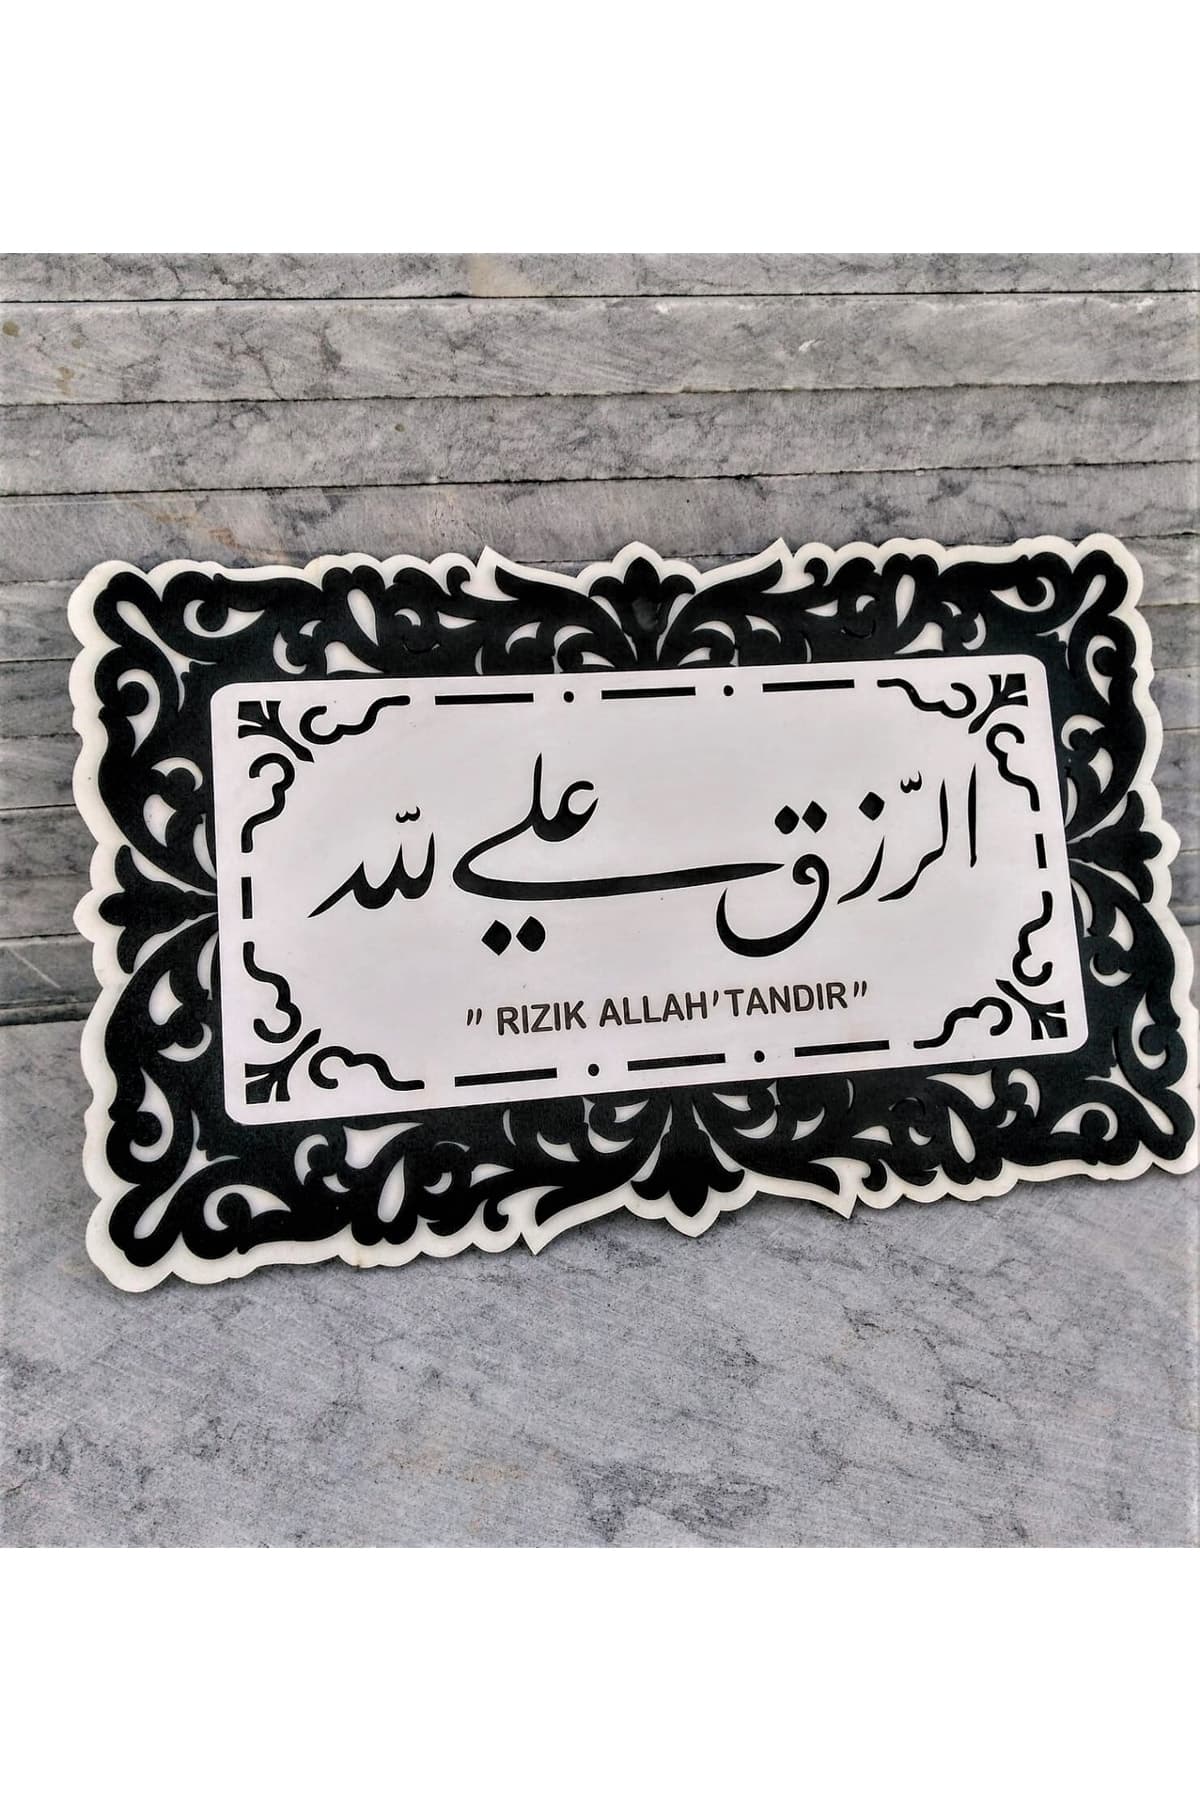 الرّزق علي لله
" RIZIK ALLAH'TANDIR"